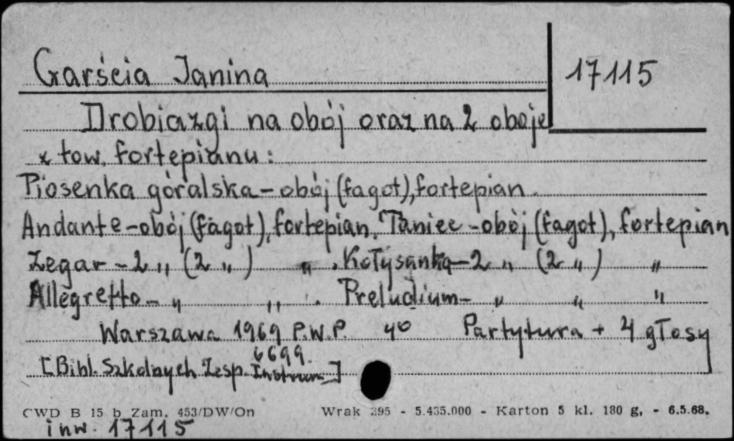 Garścia Janina
17115
Drobiazgi na obój oraz na 2 oboje
z tow. fortepianu:
Piosenka góralska - obój (fagot), fortepian.
Andante - obój (fagot), fortepian, Taniec - obój (fagot), fortepian
Zegar - 2 „ (2 „) „ . Kołysanka - 2 „ (2 „) „
Allegretto - „ „ . Preludium - „ „ „
Warszawa 1969 P.W.P. 4° Partytura + 4 głosy
6699.
[Bibl. Szkolnych Zesp. Instrum.]
CWD B 15 b Zam. 453/DW/On Wrak 295 - 5.435.000 - Karton 5 kl. 180 g, - 6.5.68.
inw. 17115